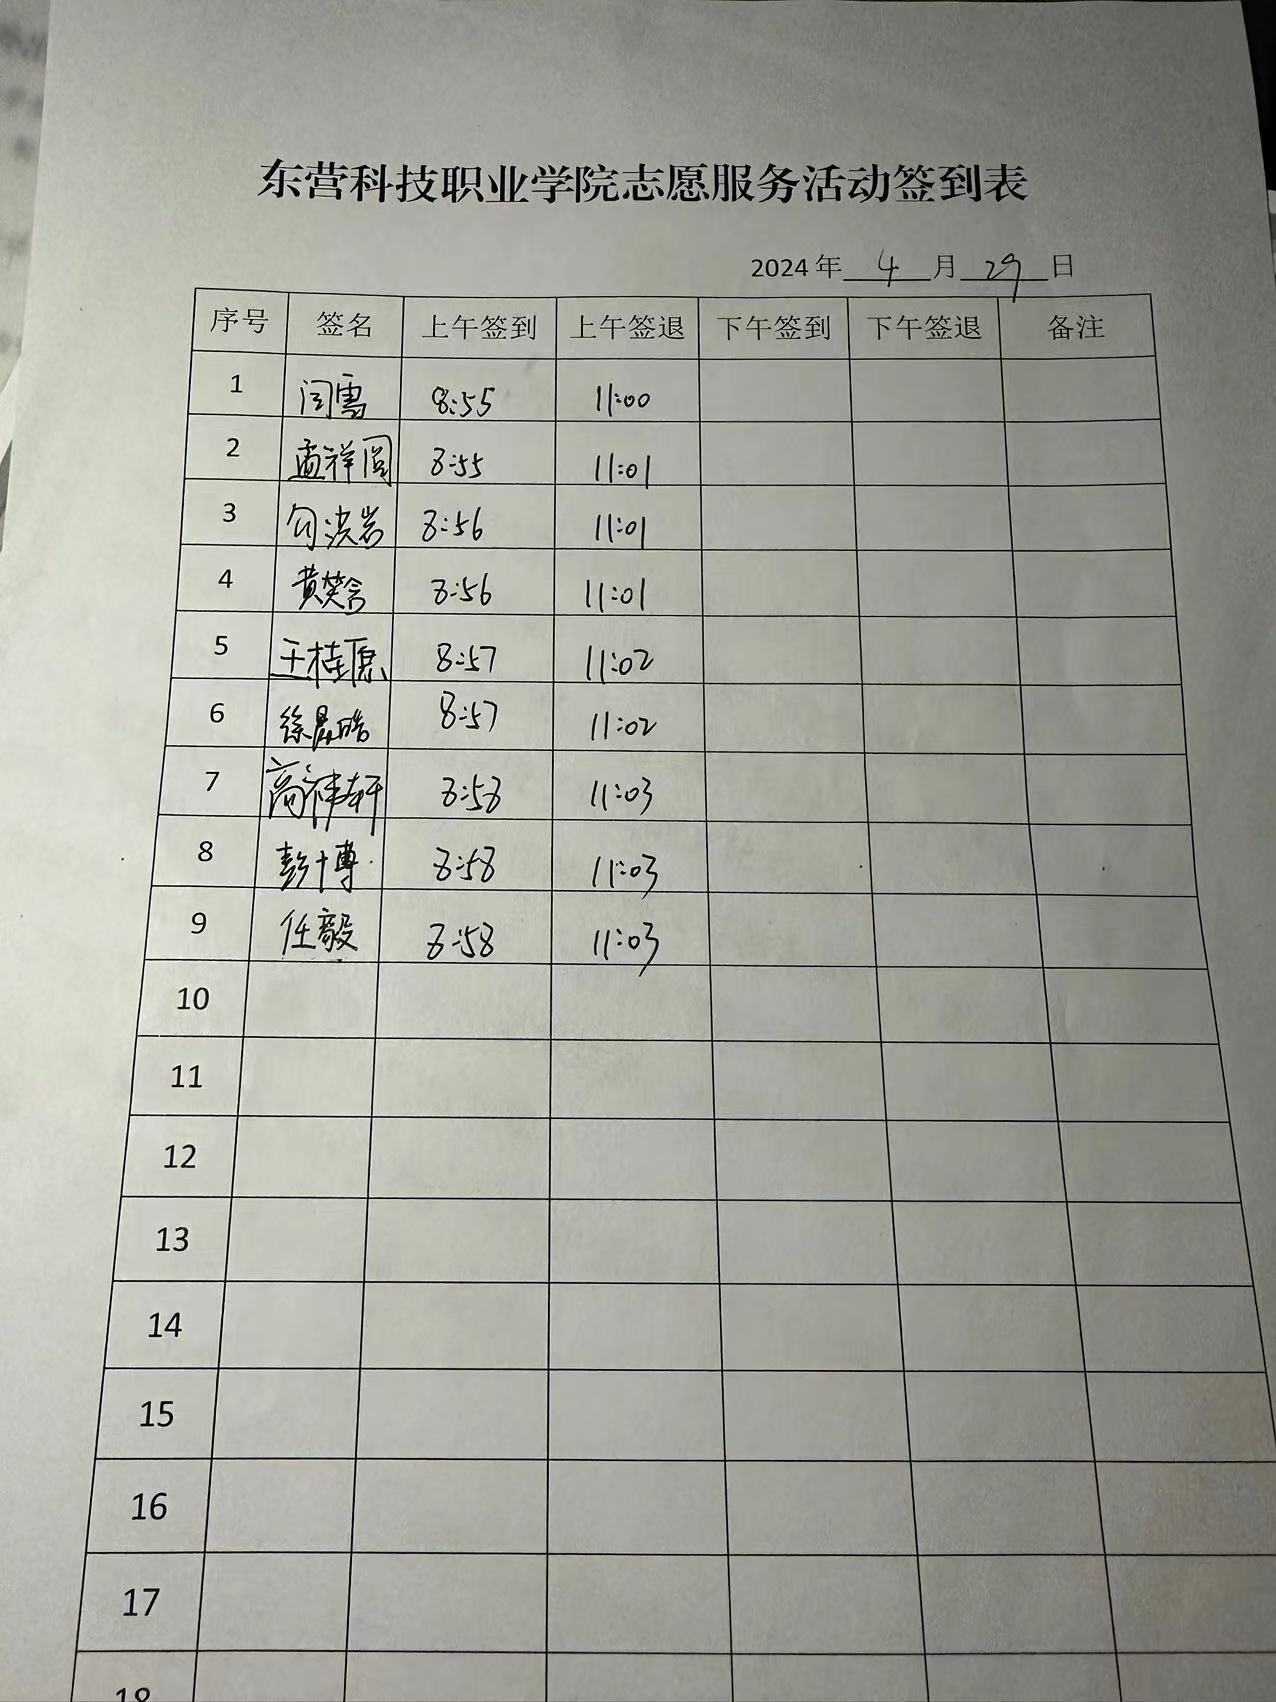 东营科技职业学院志愿服务活动签到表
2024年 4 月 29 日
序号 签名 上午签到 上午签退 下午签到 下午签退 备注
1 闫雪 8:55 11:00
2 孟祥圆 8:55 11:01
3 勾洪岩 8:56 11:01
4 黄笑含 8:56 11:01
5 王桂愿 8:57 11:02
6 徐晨皓 8:57 11:02
7 高祎轩 8:58 11:03
8 彭十博 8:58 11:03
9 任毅 8:58 11:03
10
11
12
13
14
15
16
17
18